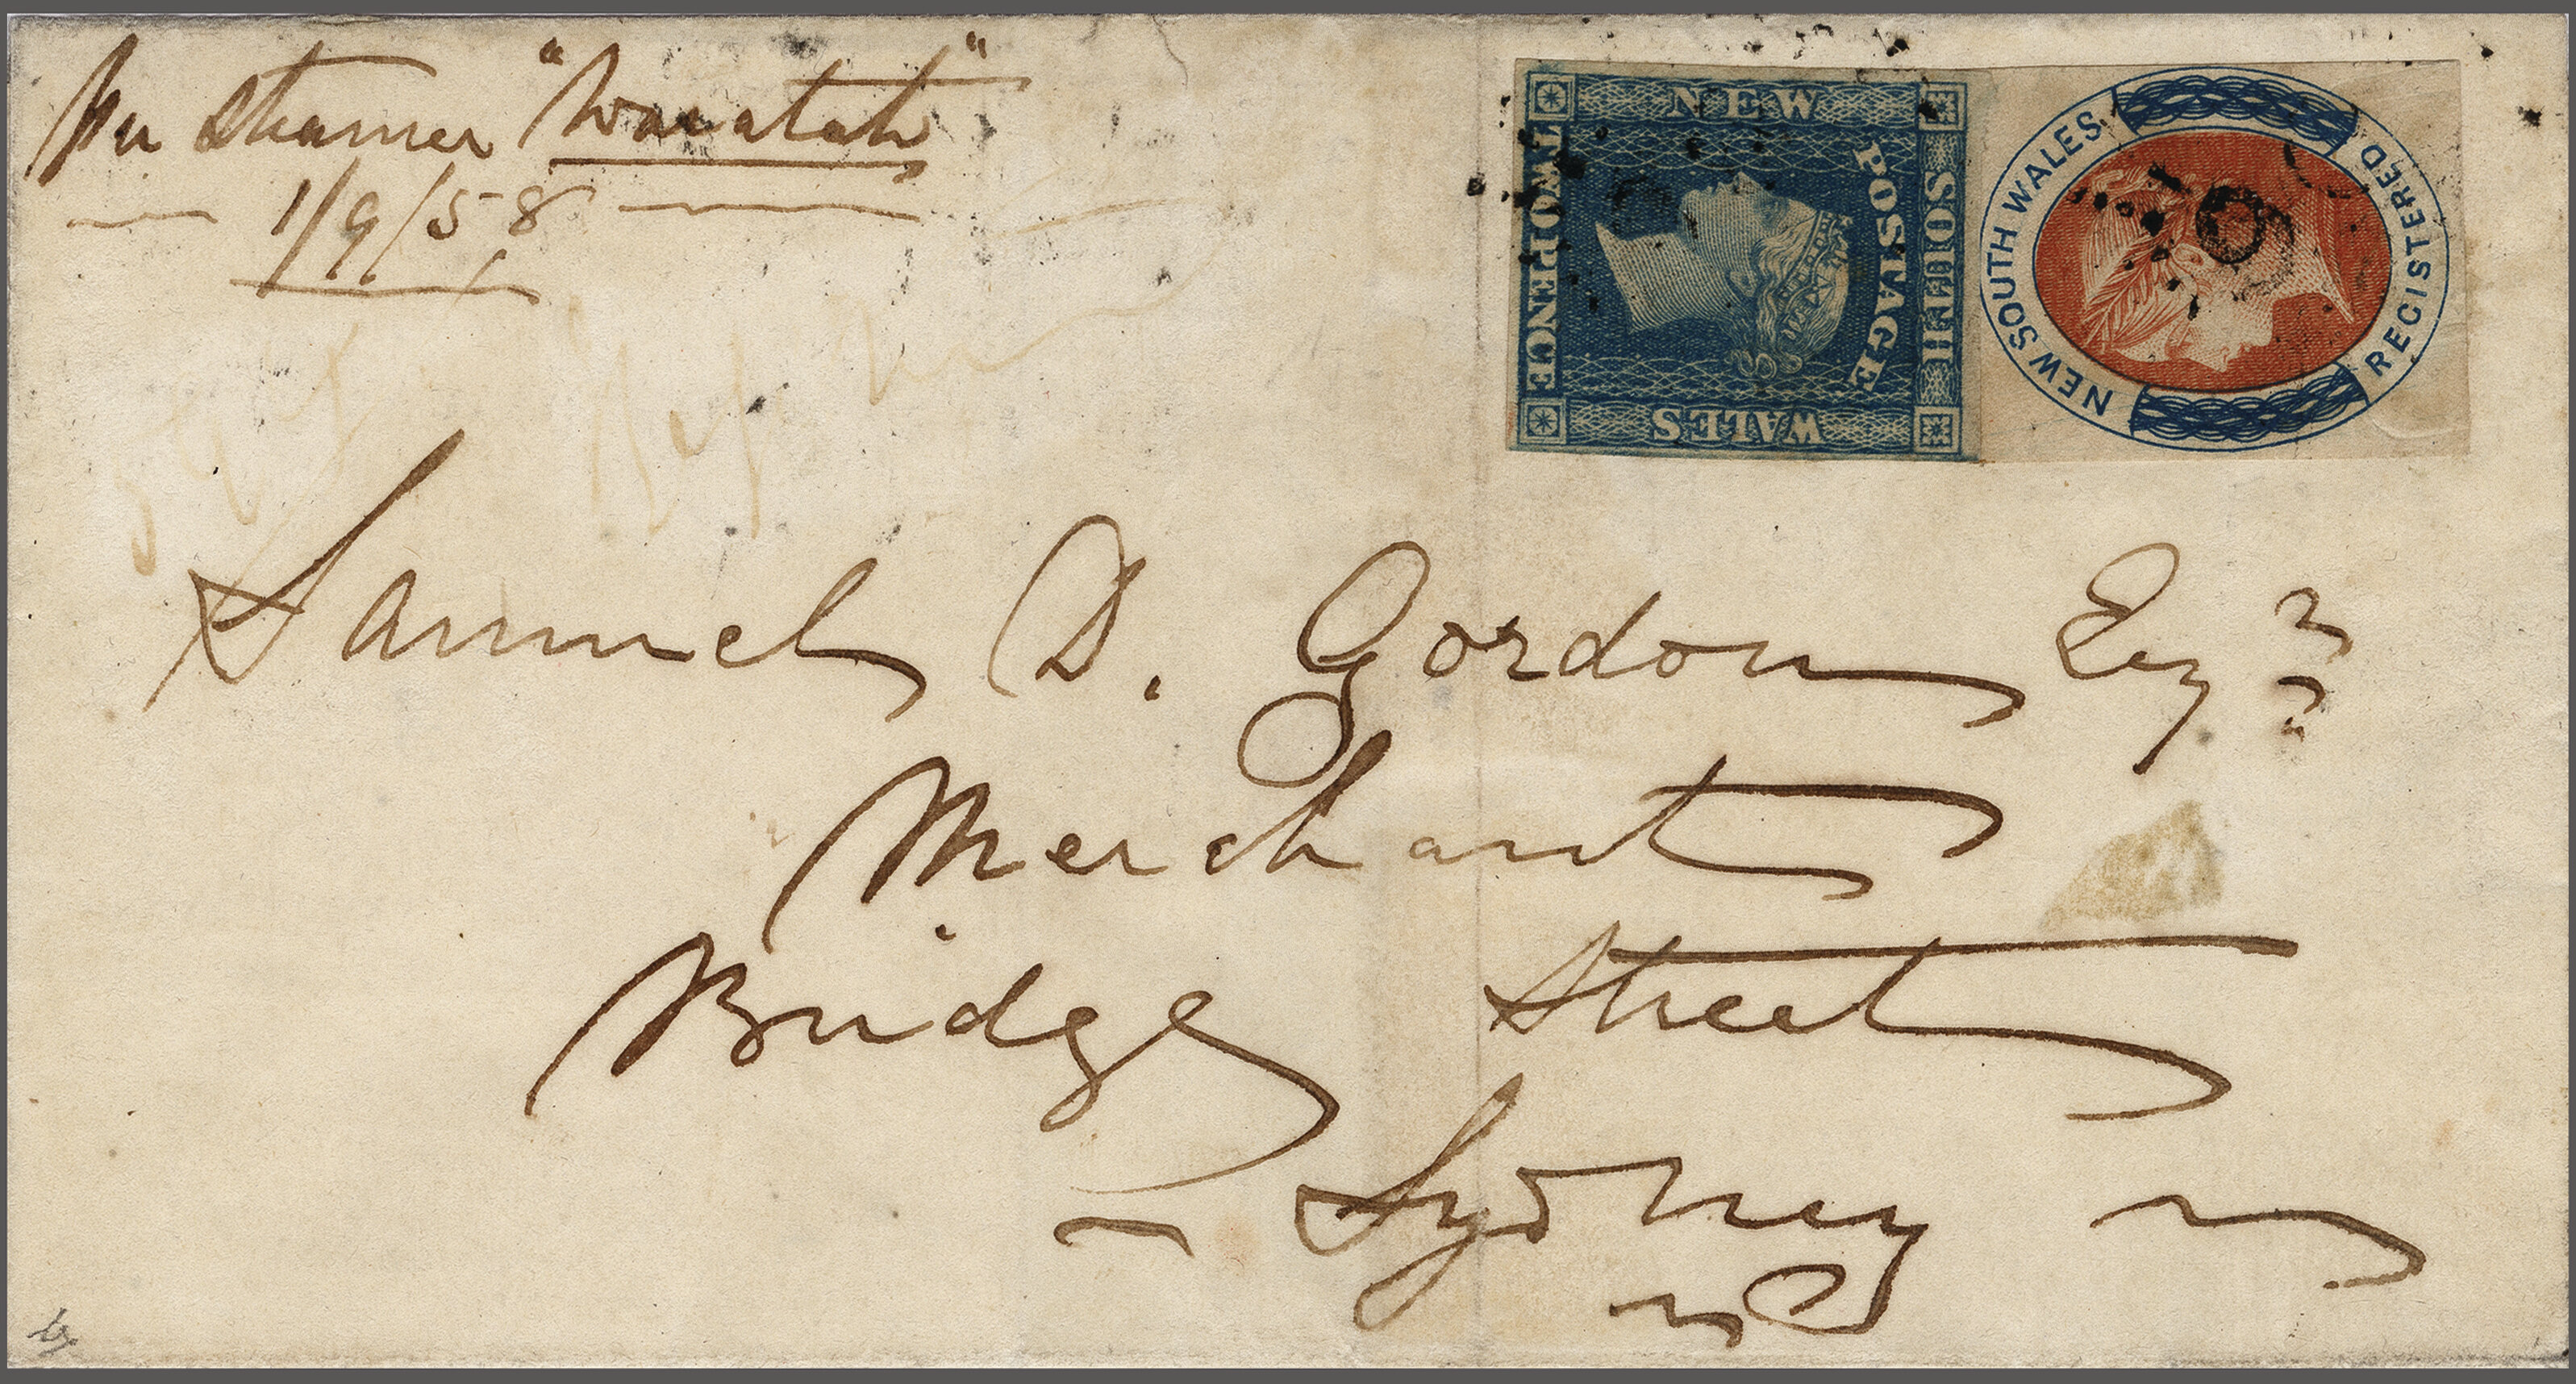 Per Steamer "Waratah"
1/9/58
NEW
SOUTH
WALES
TWO PENCE
POSTAGE
NEW SOUTH WALES
REGISTERED
Samuel D. Gordon Esqre
Merchant
Bridge Street
Sydney